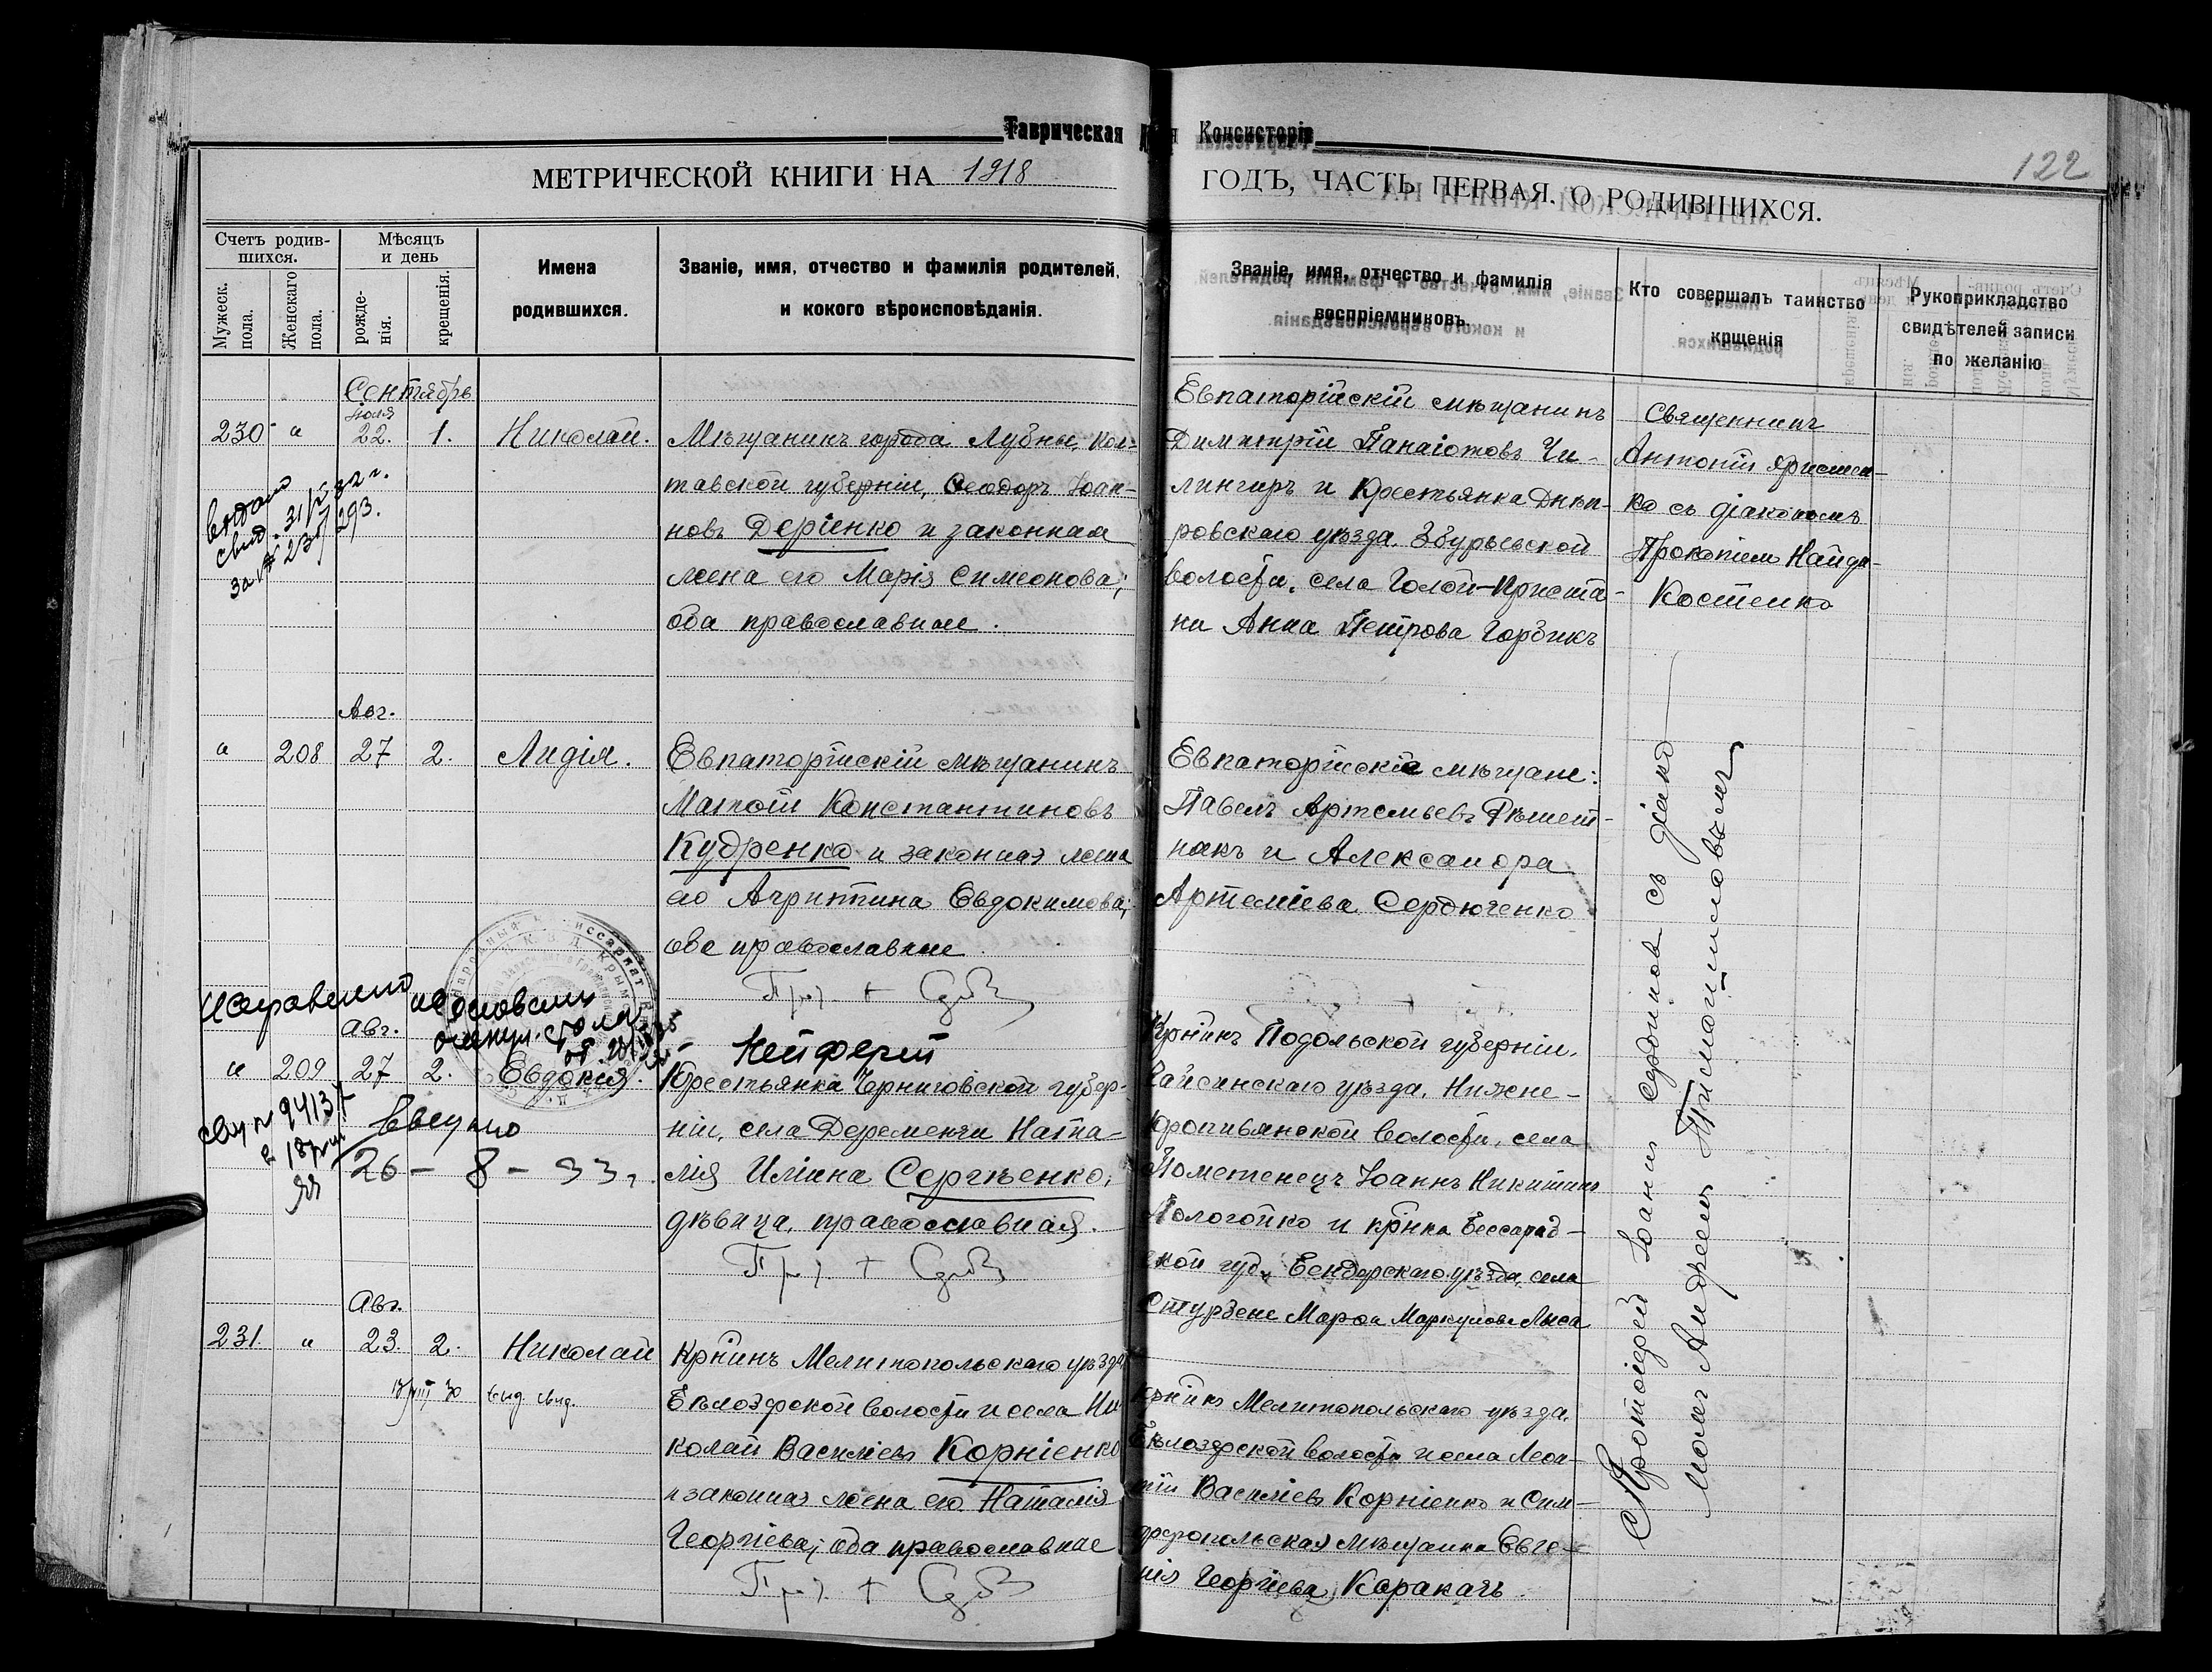 Таврическая
Консисторія
122
МЕТРИЧЕСКОЙ КНИГИ НА 1918
ГОДЪ, ЧАСТЬ ПЕРВАЯ. О РОДИВШИХСЯ.
Счетъ родив-
шихся.
Мужеск.
пола.
Женскаго
пола.
Мѣсяцъ
и день
рожде-
нія.
крещенія.
Имена
родившихся.
Званіе, имя, отчество и фамилія родителей,
и кокого вѣроисповѣданія.
Званіе, имя, отчество и фамилія
воспріемниковъ.
Кто совершалъ таинство
крщенія
Рукоприкладство
свидѣтелей записи
по желанію
Сентябрь
Іюля
230 " 22. 1. Николай.
Мѣщанинъ города Лубны, Пол-
тавской губерніи, Ѳеодоръ Іоан-
новъ Деріенко и законная
жена его Марія Симеонова;
оба православные.
Евпаторійскій мѣщанинъ
Димитрій Панаіотовъ Чи-
лингиръ и Крестьянка Днѣп-
ровскаго уѣзда, Збурьевской
волости, села Голой-Приста-
ни Анна Петрова Горбикъ
Священникъ
Антоній
ко съ діакономъ
Прокопіемъ Найда-
Костенко
выдано
свид. 31/X 32 г.
за № 235/293.
Авг.
" 208 27 2. Лидія.
Евпаторійскій мѣщанинъ
Матѳій Константиновъ
Кудренко и законная жена
его Агриппина Евдокимова;
оба православные.
Евпаторійскіе мѣщане:
Павелъ Артемьевъ Рѣшет-
никъ и Александра
Артеміева Сердюченко
Исправлено на основании
от
Авг.
" 209 27 2. Евдокія.
Нейферій
Крестьянка Черниговской губер-
ніи, села Деременки Ната-
лія Иліина Сергѣенко,
дѣвица, православная.
26 - 8 - 33 г.
Кр҃нинъ Подольской губерніи,
Гайсинскаго уѣзда, Нижне-
Кропивянской волости, села
Пометенецъ Іоаннъ Никитинъ
Пологойко и кр҃нка Бессараб-
ской губ., Бендерскаго уѣзда, села
Стурзени Марѳа Маркушова Лыса
Авг.
231. " 23. 2. Николай
13/VIII 30 выд. свид.
Кр҃нинъ Мелитопольскаго уѣзда,
Бѣлозерской волости и села Ни-
колай Василіевъ Корніенко
и законная жена его Наталія
Георгіева; оба православные
Кр҃нинъ Мелитопольскаго уѣзда,
Бѣлозерской волости и села Леон-
тій Василіевъ Корніенко и Сим-
феропольская мѣщанка Евге-
нія Георгіева Каракачъ.
Протоіерей Іоаннъ Сердобовъ съ діако-
номъ Андреемъ